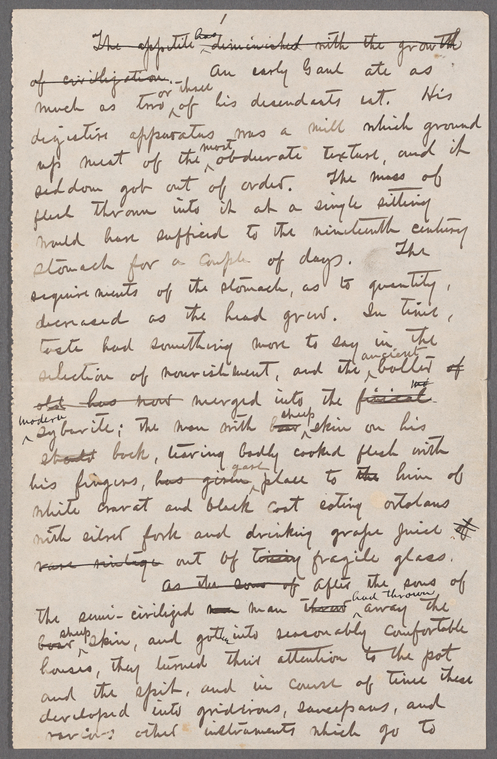 The appetite has diminished with the growth
of civilization. An early Gaul ate as
much as two or three of his descendants eat. His
digestive apparatus was a mill which ground
up meat of the most obdurate texture, and it
seldom got out of order. The mass of
flesh thrown into it at a single sitting
would have sufficed to the nineteenth century
stomach for a couple of days. The
requirements of the stomach, as to quantity,
decreased as the head grew. In time,
taste had something more to say in the
selection of nourishment, and the ancient bolter of
old has now merged into the
modern Sybarite; the man with bear sheep skin on his
back, tearing badly cooked flesh with
his fingers, has given gave place to the him of
white cravat and black coat eating ortolans
with silver fork and drinking grape juice of
rare vintage out of fragile glass.
As the sons of After the sons of
the semi-civilized man man had thrown away the
bear sheep skin, and gotten into seasonably comfortable
houses, they turned their attention to the pot
and the spit, and in course of time these
developed into gridirons, saucepans, and
various other instruments which go to